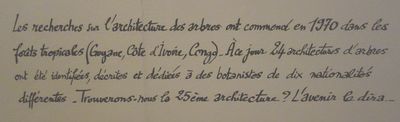 Les recherches sur l'architecture des arbres ont commencé en 1970 dans les
forêts tropicales (Guyane, Côte d'Ivoire, Congo). À ce jour 24 architectures d'arbres
ont été identifiées, décrites et dédiées à des botanistes de dix nationalités
différentes. Trouverons-nous la 25ème architecture ? L'avenir le dira...